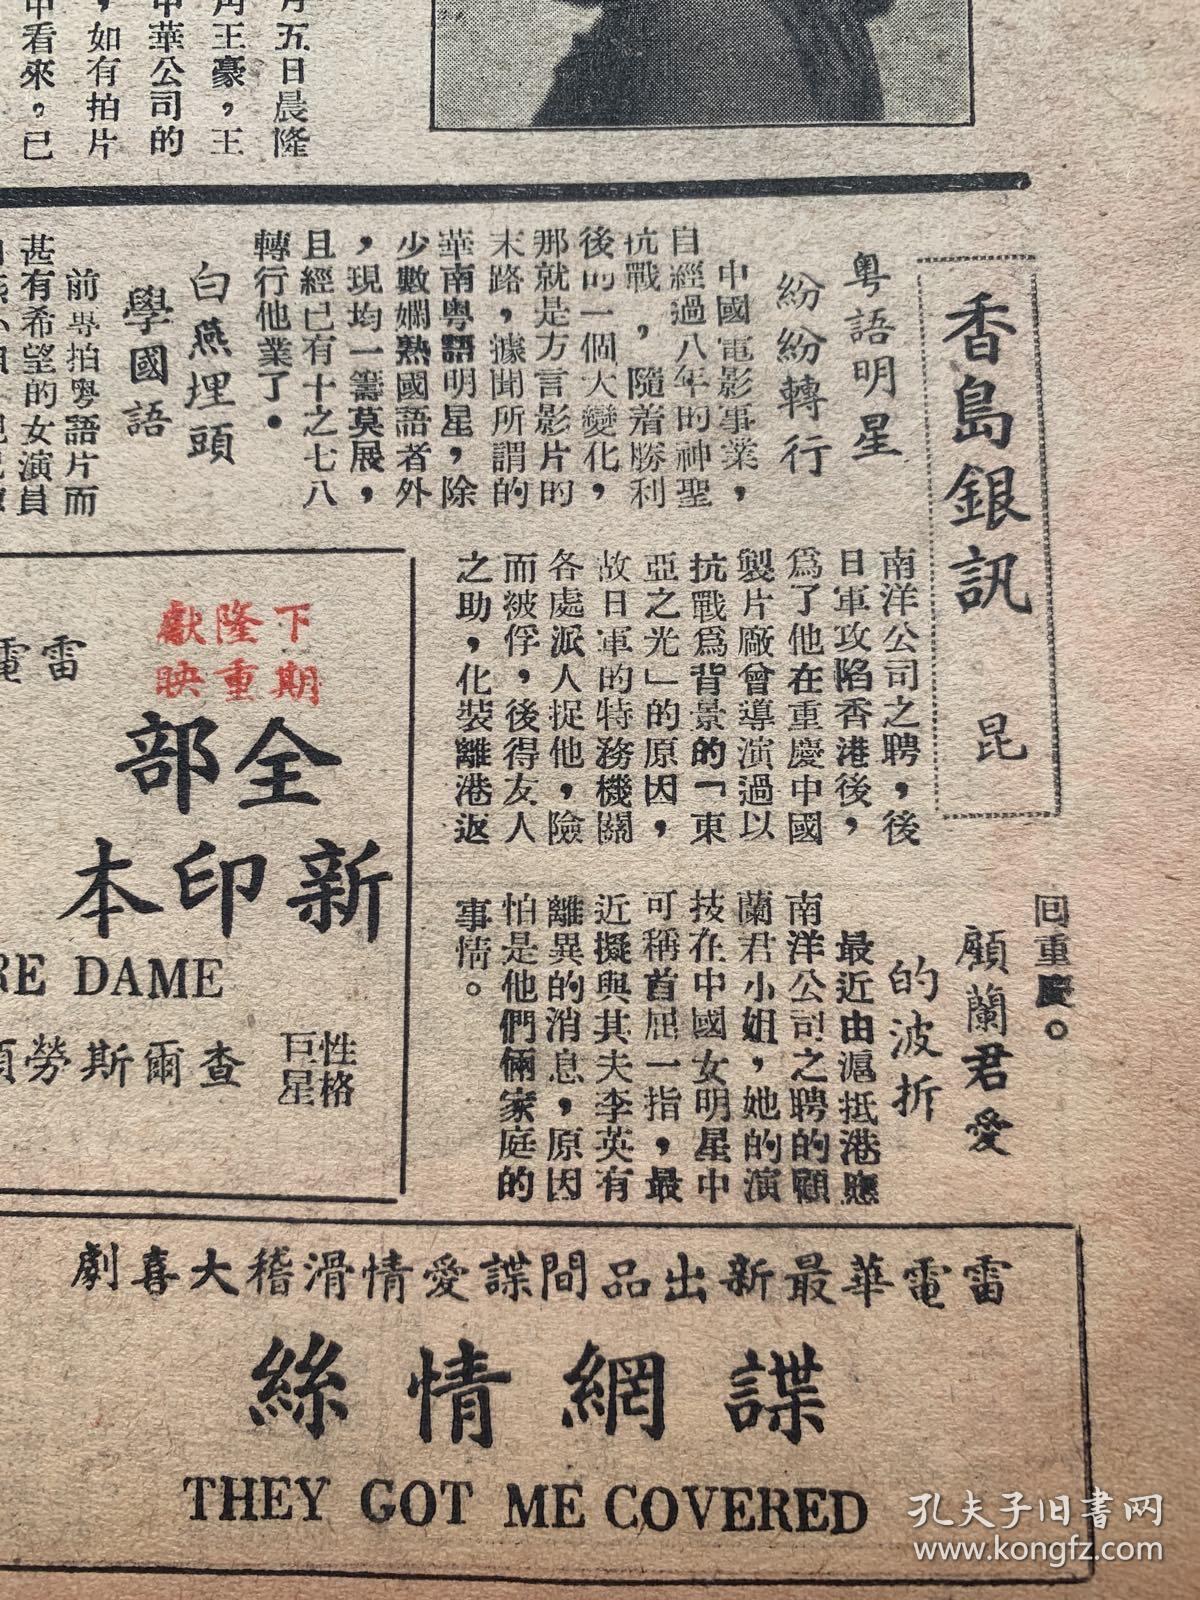 月五日晨隆
角王豪，王
中華公司的
，如有拍片
中看來，已
香島銀訊
昆
粤語明星
紛紛轉行
中國電影事業，
自經過八年的神聖
抗戰，隨着勝利
後的一個大變化，
那就是方言影片的
末路，據聞所謂的
華南粤語明星，除
少數嫻熟國語者外
，現均一籌莫展，
且經已有十之七八
轉行他業了。
白燕埋頭
學國語
前專拍粤語片而
甚有希望的女演員
南洋公司之聘，後
日軍攻陷香港後，
爲了他在重慶中國
製片廠曾導演過以
抗戰爲背景的「東
亞之光」的原因，
故日軍的特務機關
各處派人捉他，險
而被俘，後得友人
之助，化裝離港返
回重慶。
顧蘭君愛
的波折
最近由滬抵港應
南洋公司之聘的顧
蘭君小姐，她的演
技在中國女明星中
可稱首屈一指，最
近擬與其夫李英有
離異的消息，原因
怕是他們倆家庭的
事情。
下期隆重獻映
雷電
全部
新印本
RE DAME
性格巨星
查爾斯勞頓
雷電華最新出品間諜愛情滑稽大喜劇
諜網情絲
THEY GOT ME COVERED
孔夫子旧書网
www.kongfz.com